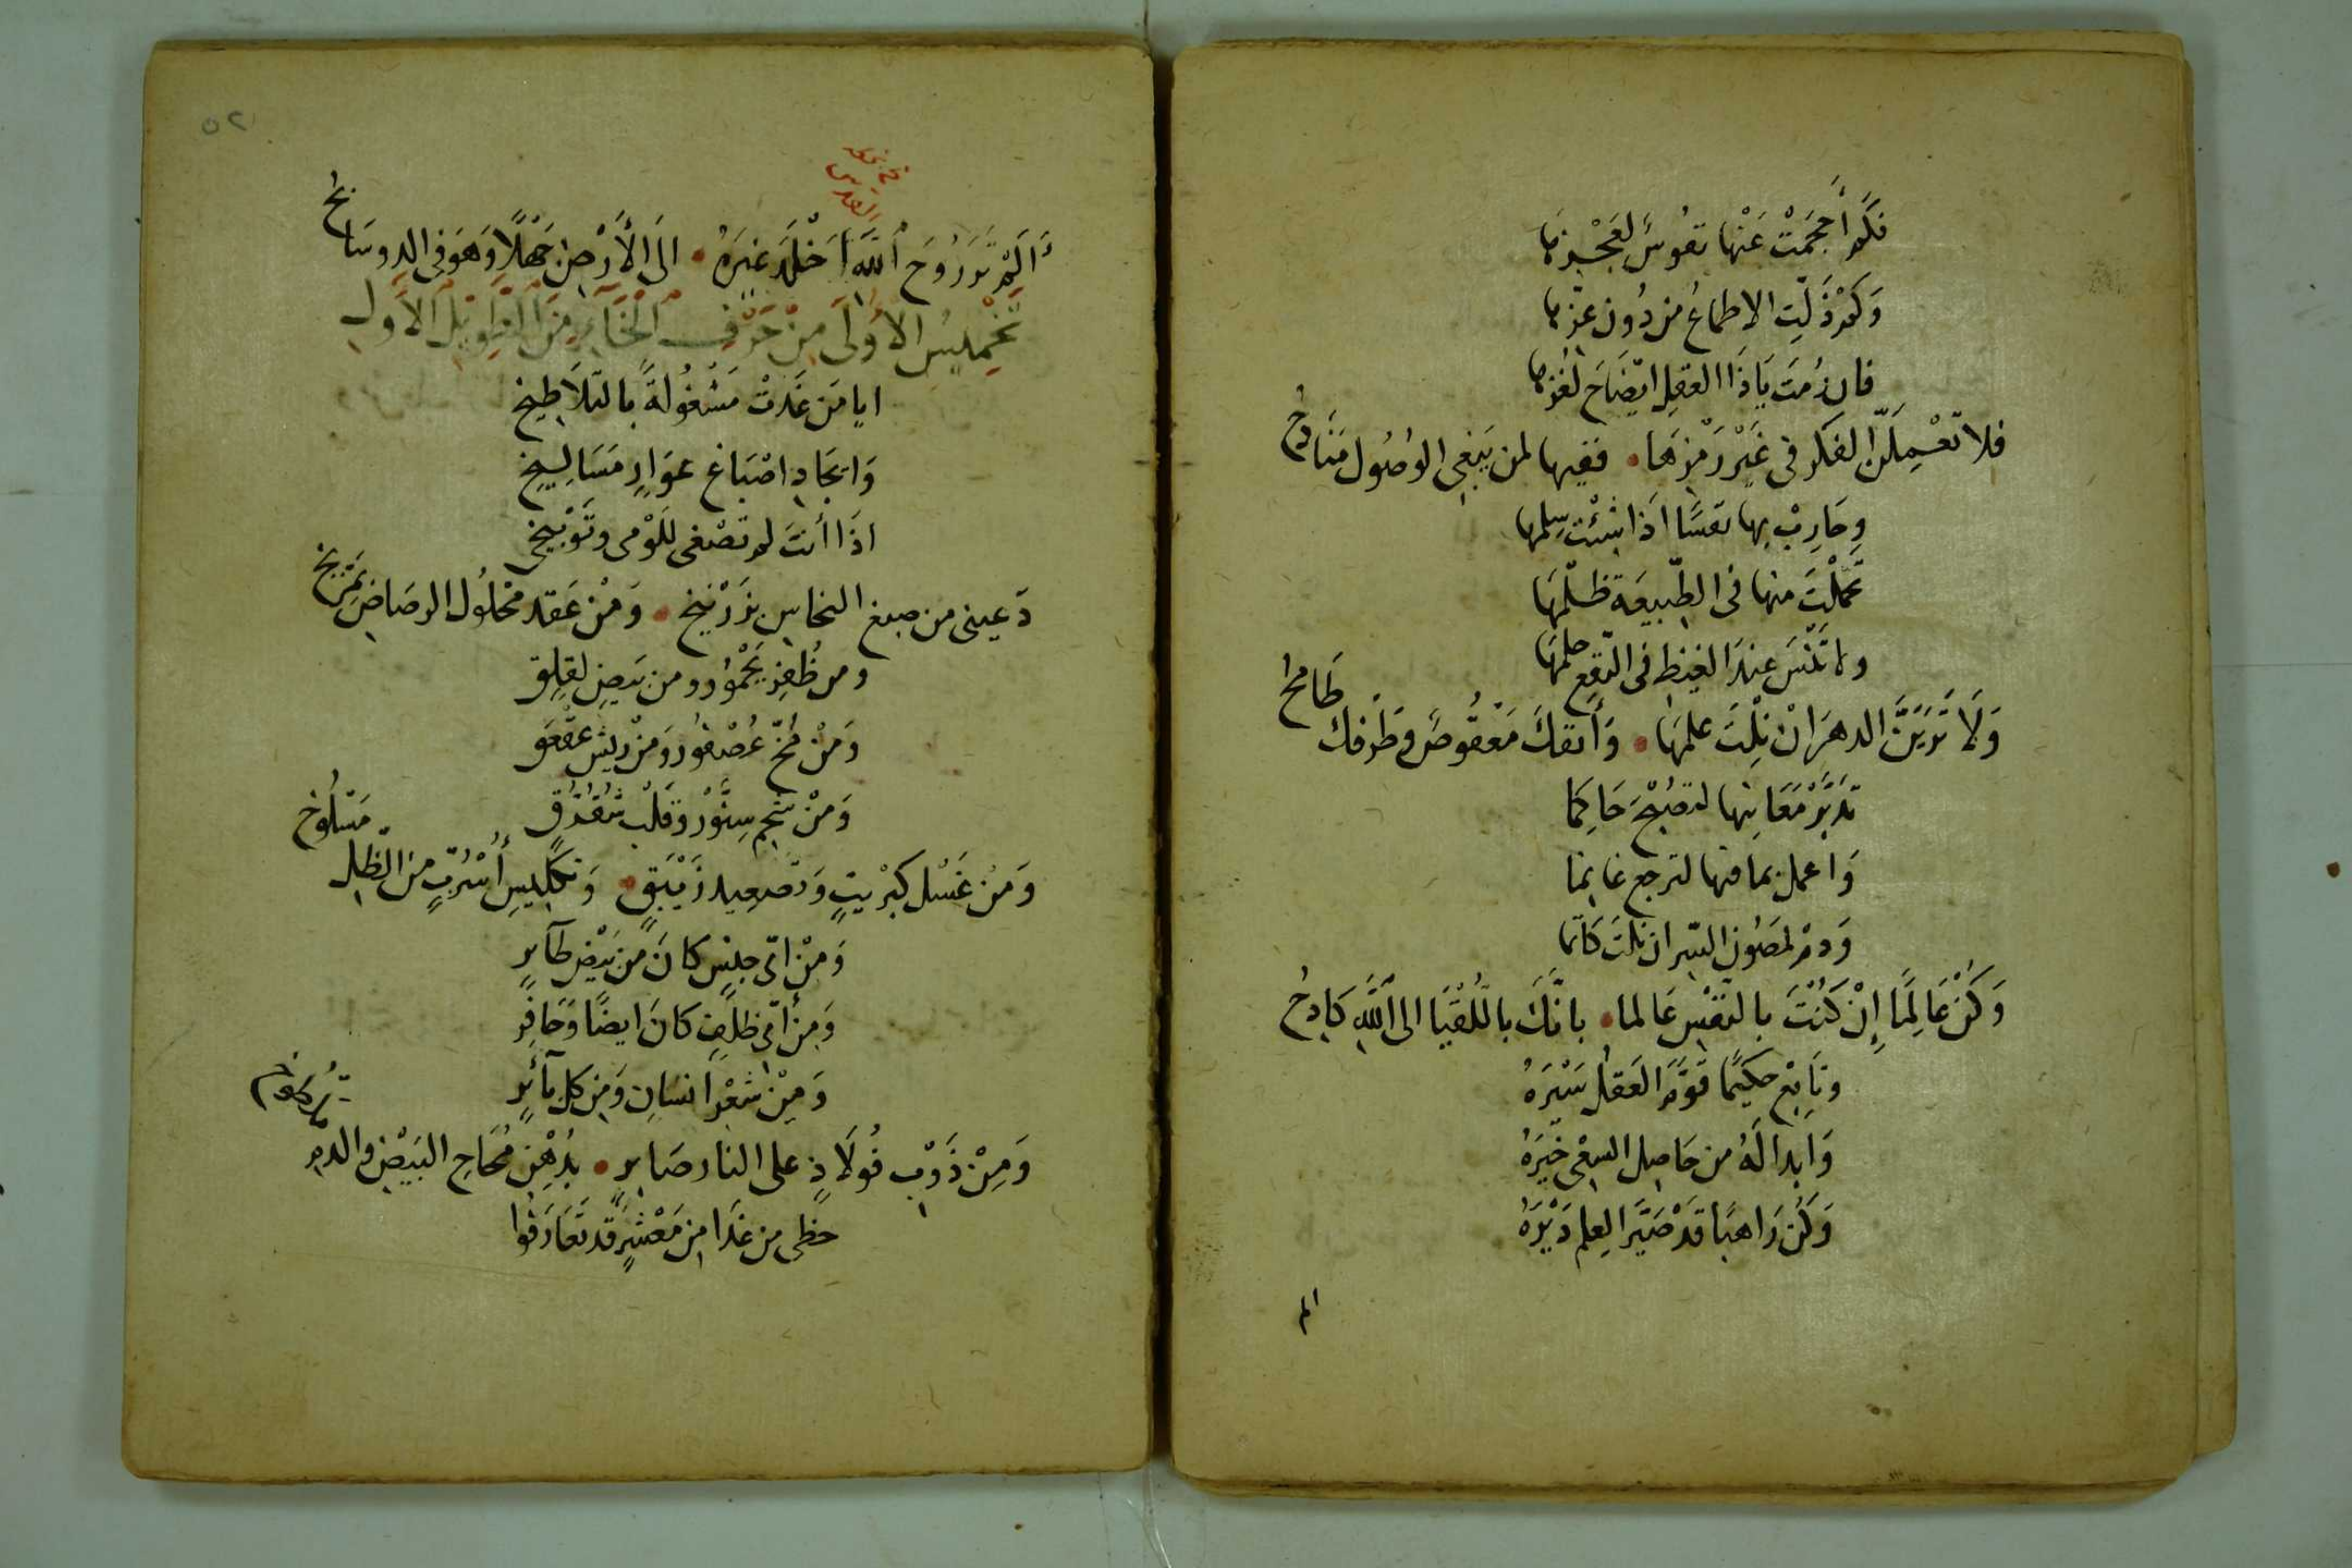 فكم أحجمت عنها نفوس لعجزها
وكم ذلت الاطماع من دون عزها
فان رمت يا ذا العقل ايضاح لغزها
فلا تعملن الفكر في غير رمزها ففيها لمن يبغي الوصول منادح
وحارب بها نفسا اذا شئت سلمها
تحملت منها في الطبيعة ظلمها
ولا تنس عند الغيظ في النقع حلمها
ولا ترين الدهر ان نلت علمها وأنفك معقوص وطرفك طامح
تدبر معانيها لتصبح حاكما
واعمل بما فيها لترجع غانما
ودم لمصون السر ان نلت كاتما
وكن عالما إن كنت بالنفس عالما بانك باللقيا الى الله كادح
وتابع حكيما قوم العقل سيره
وأبدا له من حاصل السعي خيره
وكن راهبا قد صير العلم ديره
الم
٥٢
ألم تر روح الله أخلد غيره الى الأرض جهلا وهو في الدو سائح
تخميس الأولى من حرف الخاء من الطويل الأول
ايا من غدت مشغولة بالتلاطيخ
وايجاد اصباغ عوار مساليخ
اذا أنت لم تصغي للومي وتوبيخي
دعيني من صبغ النحاس بزرنيخ ومن عقد محلول الرصاص بمريخ
ومن ظفر يحمور ومن بيض لقلق
ومن مخ عصفور ومن ريش عقعق
ومن شحم سنور وقلب شقرق
ومن غسل كبريت وتصعيد زيبق وتكليس أسرب من الظل مسلوخ
ومن اي جنس كان من بيض طائر
ومن أي ظلف كان ايضا وحافر
ومن شعر انسان ومن كل بائر
ومن ذوب فولاذ على النار صابر بدهن محاح البيض والدم
حظي من غدا من معشر قد تعارفوا